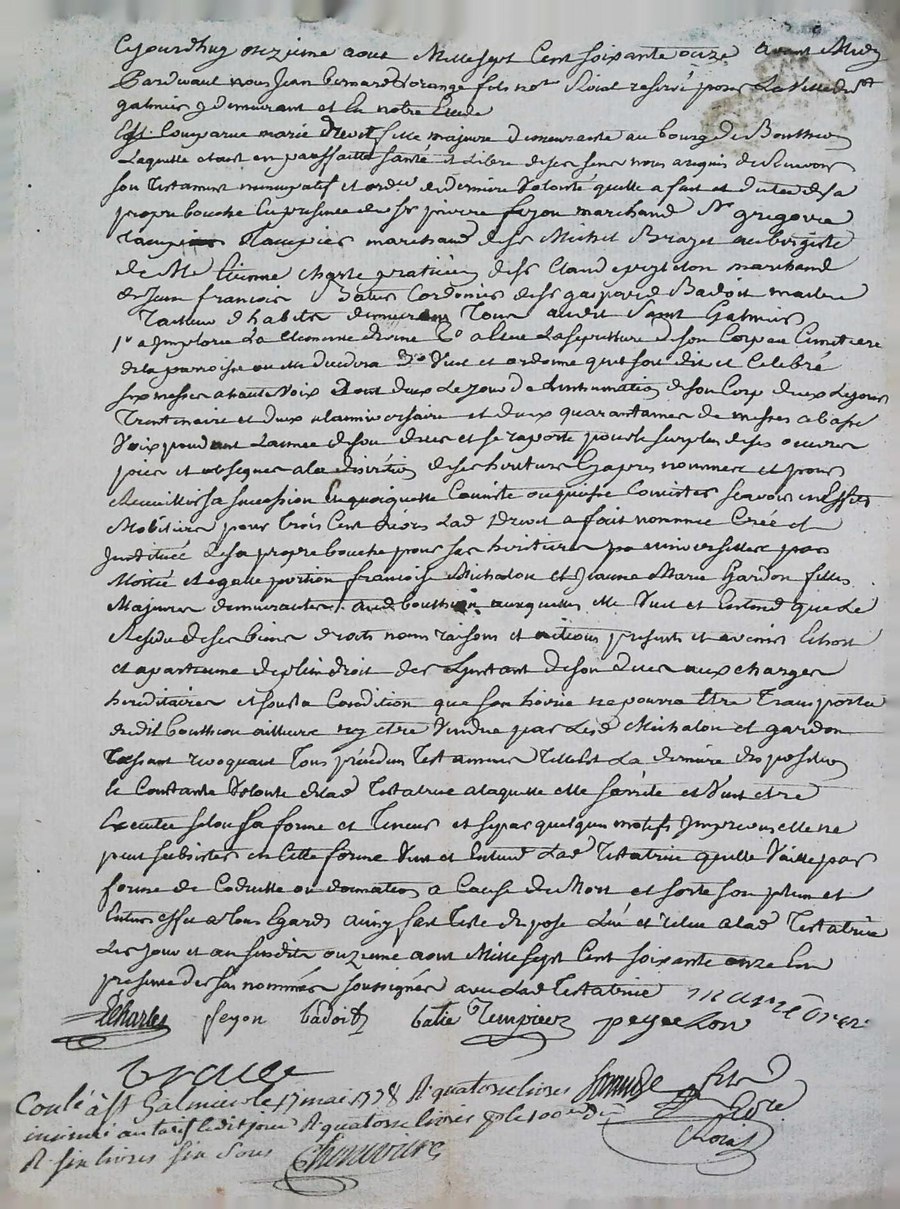 Cejourdhuy onzieme aout Mille sept Cent soixante onze avant Midy
Pardevant nous Jean bernard Dorange fils no.re Roial reservé pour La Ville de St
galmier y demeurant et En notre Etude
Est Comparue marie drevet fille majeure demeurante au bourg de Bouthion
Laquelle etant en parffaitte santé et Libre de ses sens nous a requis de Recevoir
son Testament nuncupatif et ordce de derniere Volonté quelle a fait et dicté de sa
propre bouche En presence de sr pierre feyon marchand Sr gregoire
Tempier marchand de sr Michel Brazet aubergiste
de Me Etienne Charle praticien de sr Claude peyrelon marchand
de Jean francois Batie Cordonier de sr gaspard Badoit maitre
Tailleur d'habits demeurans Tous audit Saint Galmier
1o a Implorée La Clemence divine 2o a Elue La sepulture de son Corp au Cimetiere
de la parroisse ou elle decedera 3o Veut et ordonne que soit dit et Celebré
six messes a haute Voix dont deux Le jour de Linhumation de son Corp deux Le jour
Trentenaire et deux a Lanniversaire et deux quarantaines de messes a basse
Voix pendant Lannée de son deces et se raporte pour le surplus de ses oeuvres
pies et obseques a la discretion de ses heritieres Cy apres nommées et pour
Recueillir sa succession En quoi quelle Consiste ou puisse Consister scavoir en Effets
Mobiliers pour trois Cent Livres Lad. Drevet a fait nommée Créé et
Institué de sa propre bouche pour ses heritieres universelles par
Moitié et egalle portion francoise Michalon et Jeanne Marie Gardon filles
Majeures demeurantes aud. bouthion auxquelles elle Veut et Entend que Le
Residu de ses biens droits noms raisons et actions presents et avenir Echoit
et apartienne de plein droit des Linstant de son deces aux charges
hereditaires et sous la Condition que son hoirie ne pourra Etre Transportée
dudit bouthion ailleurs ny etre Vendue par Lesd. Michalon et gardon
Cassant revoquant Tous précédens Testamens Telle Est La derniere disposition
et Constante Volonté de lad. Testatrice a laquelle elle s'arrete et Veut etre
Executée selon sa forme et Teneur et si par quelques motifs Imprevus elle ne
peut subsister en Cette forme Veut et Entend Lad. Testatrice quelle Vaille par
forme de Codicille ou donation a Cause de Mort et sorte son plein et
Entier effet a Tous Egards ainsy fait Testé disposé Lû et relu a lad. Testatrice
Les jour et an susdits onzieme aout Mille sept Cent soixante onze En
presence des susnommés soussignés avec Lad. Testatrice marie drevet
E Charles feyon badoit batie Tempier peyrelon
braze
Conlé à St Galmier le 17 mai 1778 R. quatorse livres Dorange fils
insinué au tarif ledit jour R. quatorse livres
R. six livres six sous No.re
Roial